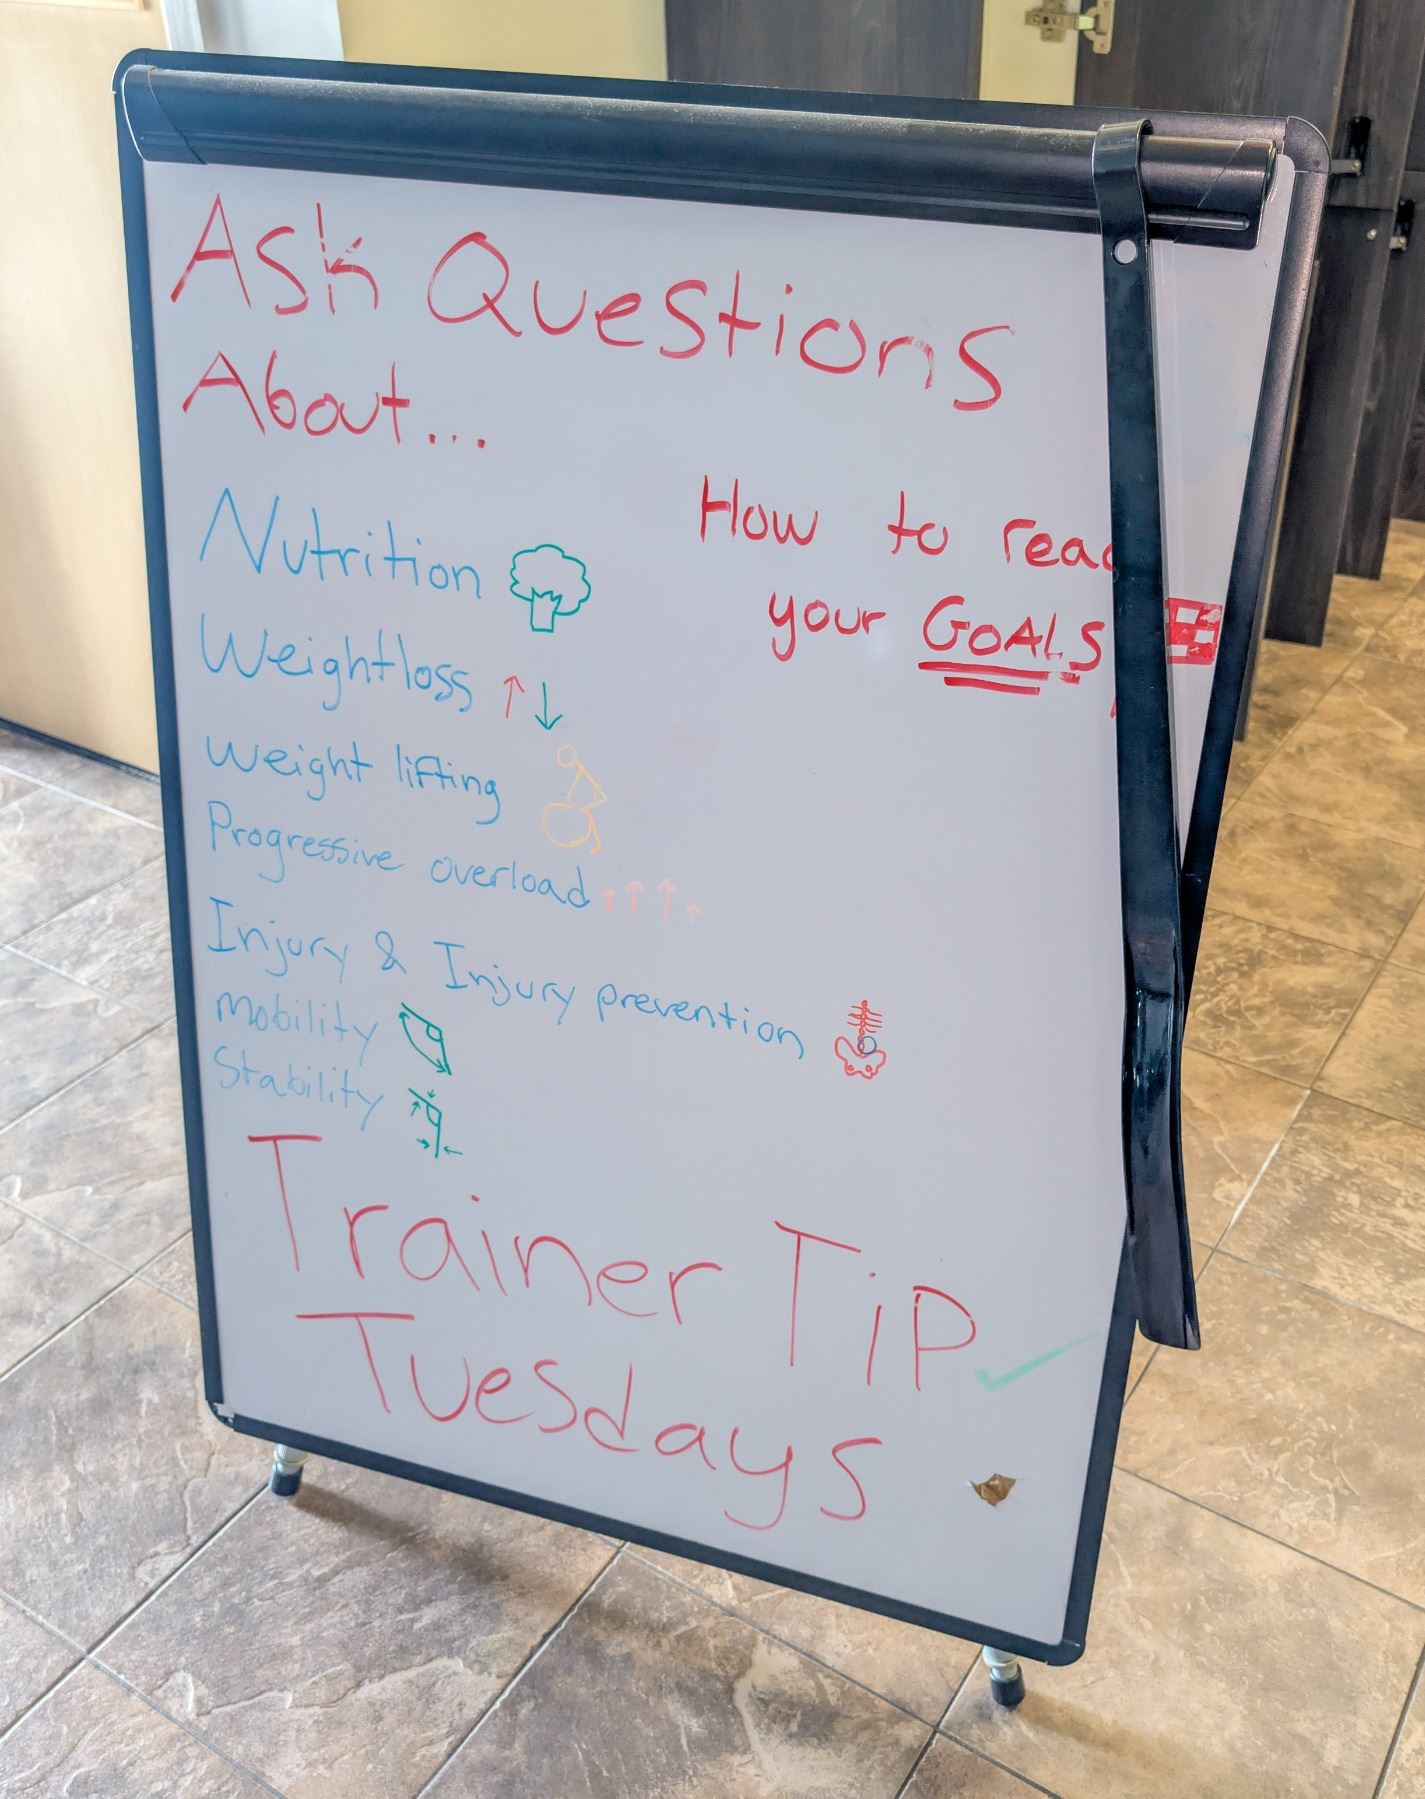 Ask Questions
About...
Nutrition
Weightloss
Weight lifting
Progressive overload
Injury & Injury prevention
Mobility
Stability
How to reac
your GOALS
Trainer Tip
Tuesdays